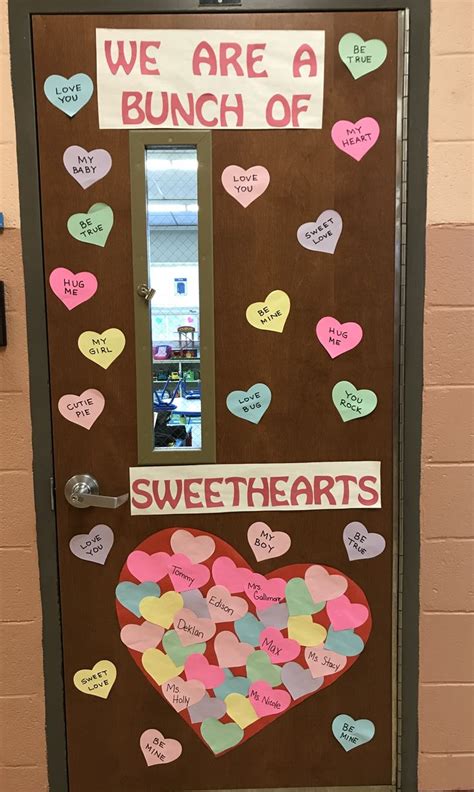 WE ARE A
BUNCH OF
BE
TRUE
LOVE
YOU
MY
HEART
MY
BABY
LOVE
YOU
BE
TRUE
SWEET
LOVE
HUG
ME
BE
MINE
HUG
ME
MY
GIRL
CUTIE
PIE
LOVE
BUG
YOU
ROCK
SWEETHEARTS
LOVE
YOU
MY
BOY
BE
TRUE
Tommy
Mrs.
Edison
Deklan
Max
Ms. Stacy
Ms.
Holly
Ms. Nicole
SWEET
LOVE
BE
MINE
BE
MINE